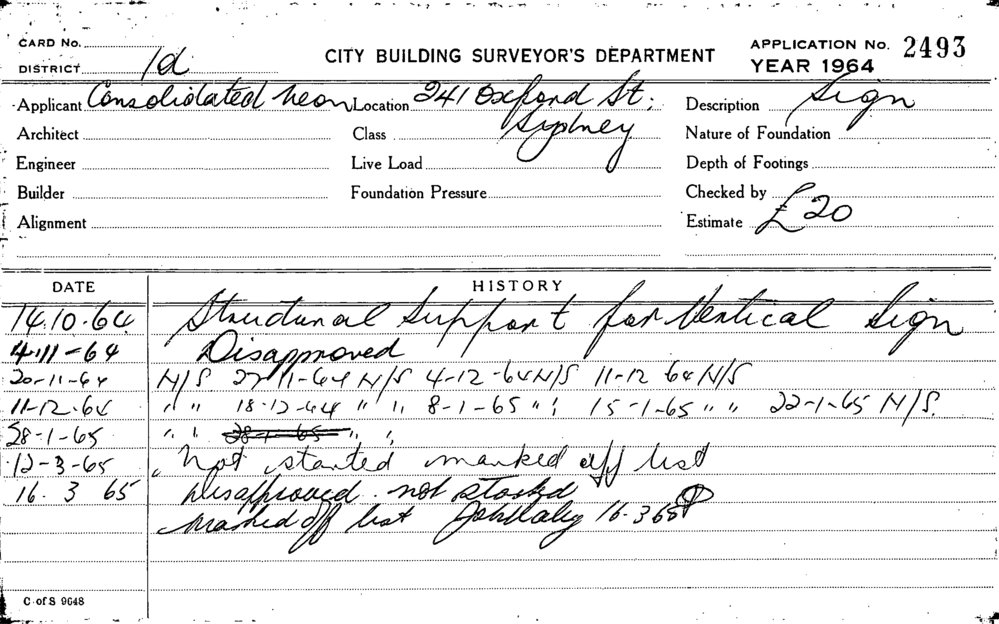 CARD No.
DISTRICT 1d
CITY BUILDING SURVEYOR'S DEPARTMENT
APPLICATION No. 2493
YEAR 1964
Applicant Consolidated Neon Location 241 Oxford St; Description Sign
Architect Class Sydney Nature of Foundation
Engineer Live Load Depth of Footings
Builder Foundation Pressure Checked by
Alignment Estimate £20
DATE HISTORY
14.10.64 Structural Support for Vertical Sign
4.11-64 Disapproved
20-11-64 N/S 27-11-64 N/S 4-12-64 N/S 11-12 64 N/S
11-12-64 " " 18-12-64 " " 8-1-65 " " 15-1-65 " " 22-1-65 N/S
28-1-65 " " 28-1-65 " "
12-3-65 Not started marked off list
16. 3 65 Disapproved. not started
marked off list 16-3 65
C of S 9648